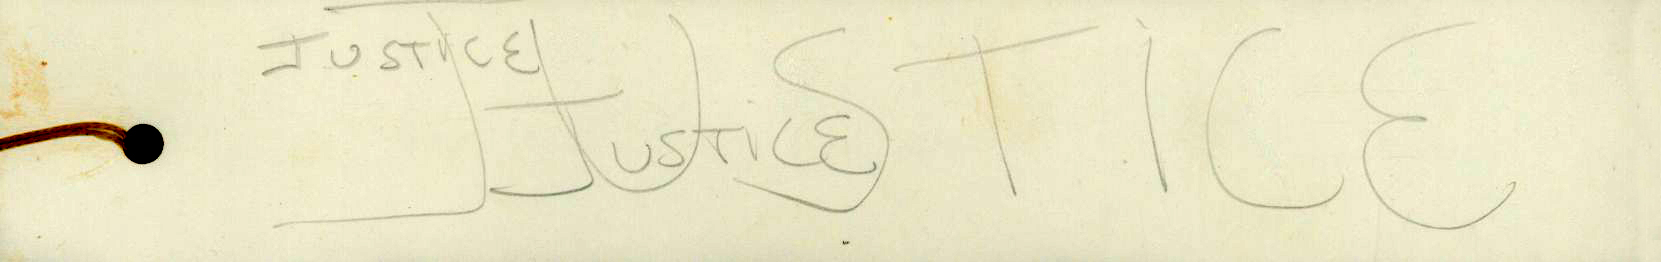 JUSTICE
JUSTICE
JUSTICE